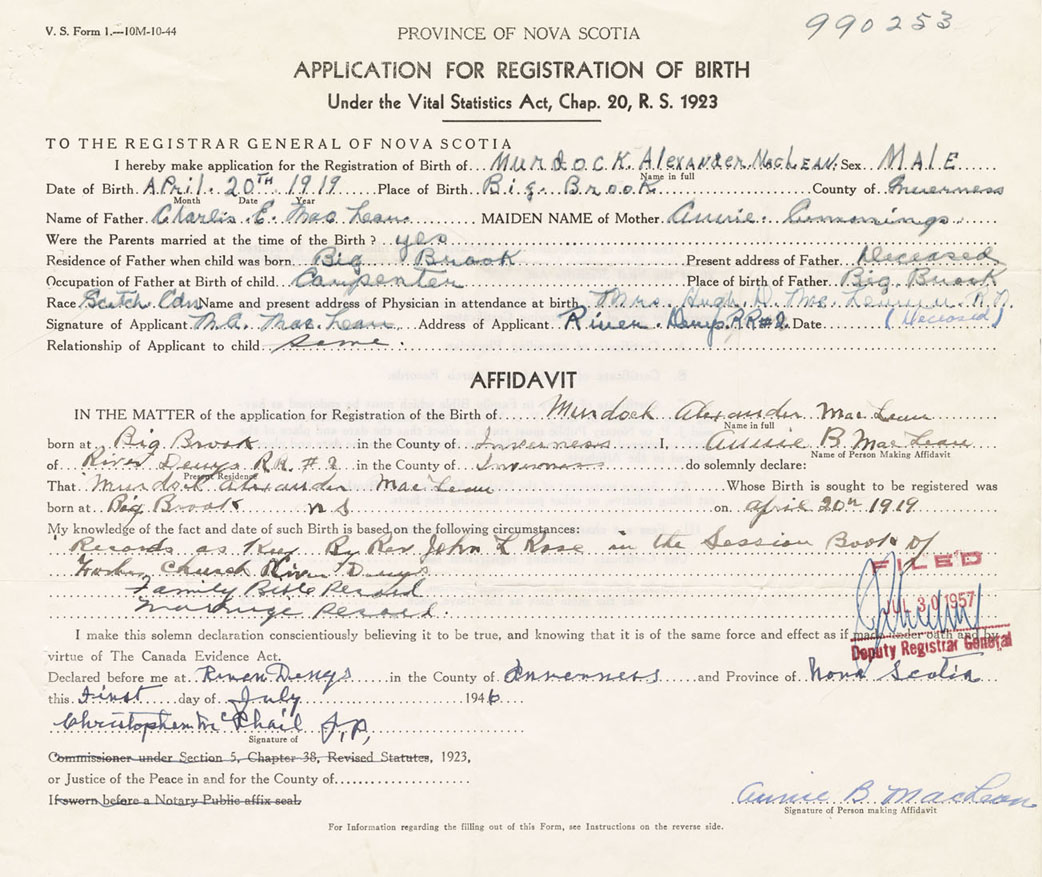 V. S. Form 1.—10M-10-44
990253
PROVINCE OF NOVA SCOTIA
APPLICATION FOR REGISTRATION OF BIRTH
Under the Vital Statistics Act, Chap. 20, R. S. 1923
TO THE REGISTRAR GENERAL OF NOVA SCOTIA
I hereby make application for the Registration of Birth of Murdock Alexander MacLean Sex MALE
Name in full
Date of Birth April 20TH 1919 Place of Birth Big Brook County of Inverness
Month Date Year
Name of Father Charlis E. Mac Lean MAIDEN NAME of Mother Annie Cummings
Were the Parents married at the time of the Birth? yes
Residence of Father when child was born Big Brook Present address of Father Deceased
Occupation of Father at Birth of child Carpenter Place of birth of Father Big Brook
Race Scotch Cdn Name and present address of Physician in attendance at birth Mrs. Hugh D. Mac Lennan
Signature of Applicant M.A. Mac Lean Address of Applicant River Denys RR#2 Date (Deceased)
Relationship of Applicant to child same
AFFIDAVIT
IN THE MATTER of the application for Registration of the Birth of Murdock Alexander Mac Lean
Name in full
born at Big Brook in the County of Inverness I, Annie B. MacLean
Name of Person Making Affidavit
of River Denys RR #2 in the County of Inverness do solemnly declare:
Present Residence
That Murdock Alexander MacLean Whose Birth is sought to be registered was
born at Big Brook N S on april 20th 1919
My knowledge of the fact and date of such Birth is based on the following circumstances:
Records as Kep By Rev John L Rose in the Session Book of
Church River Denys
Family Bible Record
Marriage Record
FILED
JUL 30 1957
Deputy Registrar General
I make this solemn declaration conscientiously believing it to be true, and knowing that it is of the same force and effect as if made under oath and by
virtue of The Canada Evidence Act.
Declared before me at River Denys in the County of Inverness and Province of Nova Scotia
this First day of July 1946
Christopher McPhail J.P.
Signature of
Commissioner under Section 5, Chapter 38, Revised Statutes, 1923,
or Justice of the Peace in and for the County of
If sworn before a Notary Public affix seal.
Annie B MacLean
Signature of Person making Affidavit
For Information regarding the filling out of this Form, see Instructions on the reverse side.